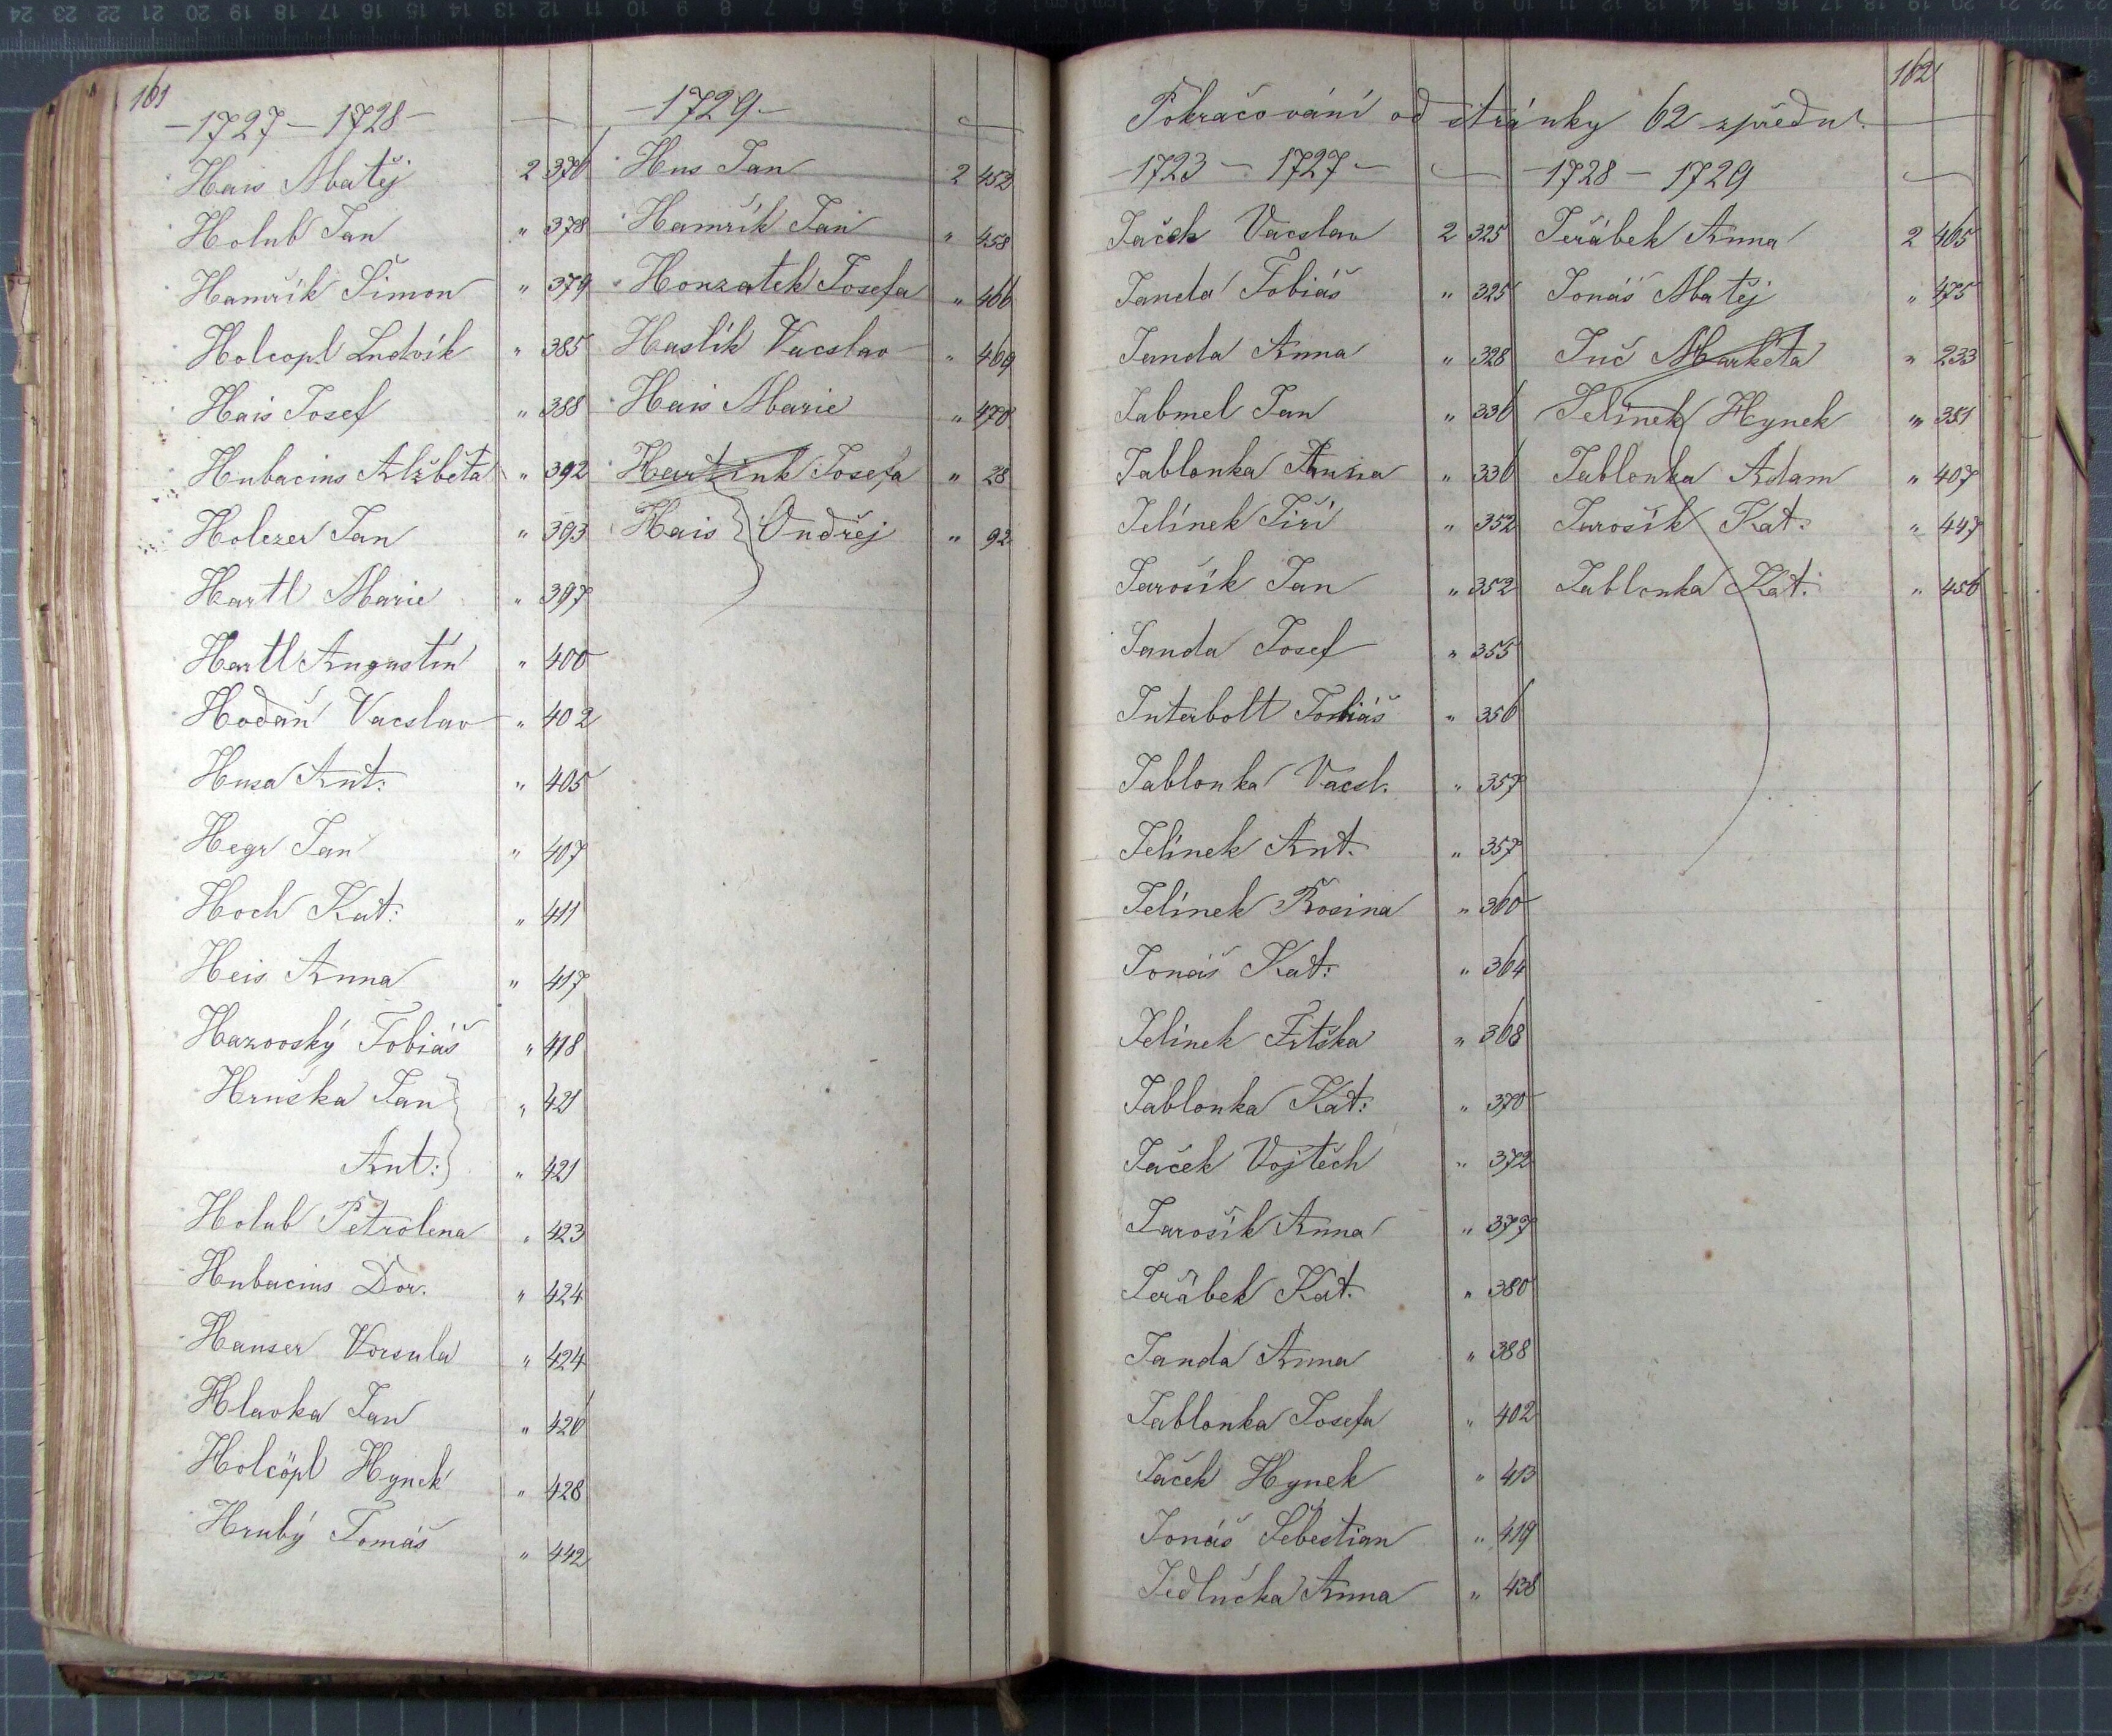 161
- 1727 - 1728 -
Hais Matěj 2 376
Holub Jan " 378
Hamřík Šimon " 379
Holcopl Ludvík " 385
Hais Josef " 388
Hubacius Alžběta " 392
Holczer Jan " 393
Hartl Marie " 397
Hartl Augustin " 400
Hodaň Vacslav " 402
Husa Ant: " 405
Hegr Jan " 407
Hoch Kat: " 411
Heis Anna " 417
Hazovský Tobiáš " 418
Hruška Jan } " 421
Ant: } " 421
Holub Petrolena " 423
Hubacius Dor. " 424
Hanser Vorsula " 424
Hlavka Jan " 426
Holcöpl Hynek " 428
Hrubý Tomáš " 442
- 1729 -
Hus Jan 2 453
Hamřík Jan " 458
Honzatek Josefa " 466
Haslík Vacslav " 469
Hais Marie " 470
Josefa " 28
Hais } Ondřej " 92
162
Pokračování od stránky 62 zpředu.
- 1723 - 1727 -
Jaček Vacslav 2 325
Janda Tobiáš " 325
Janda Anna " 328
Jabmel Jan " 336
Jablonka Anna " 336
Jelínek Jiří " 352
Jarošík Jan " 352
Janda Josef " 355
Interbolt Tobiáš " 356
Jablonka Vacsl. " 357
Jelínek Ant. " 357
Jelínek Rosina " 360
Jonáš Kat: " 364
Jelínek " 368
Jablonka Kat: " 370
Jaček Vojtěch " 372
Jarošík Anna " 377
Jeřábek Kat. " 380
Janda Anna " 388
Jablonka Josefa " 402
Jaček Hynek " 413
Jonáš Šebestian " 419
Jedlučka Anna " 438
- 1728 - 1729
Jeřábek Anna 2 465
Jonáš Matěj " 475
Juč Markéta " 233
Jelínek Hynek " 351
Jablonka Adam " 407
Jarošík Kat: " 447
Jablonka Kat: " 456